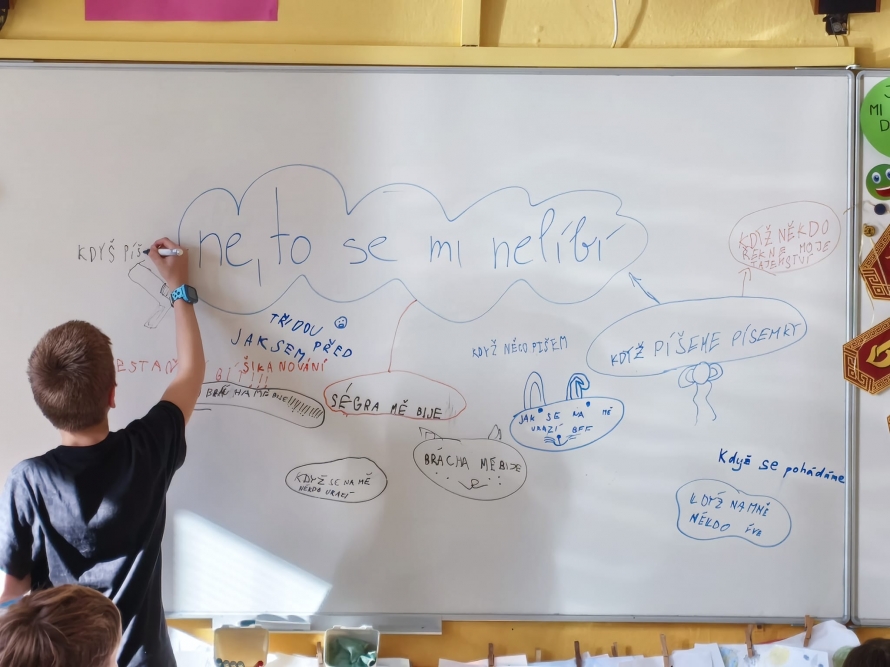 ne, to se mi nelíbí
KDYŠ PÍŠ
KDYŽ NĚKDO
ŘEKNE MOJE
TAJEMSTVÍ
TŘÍDOU
JAK SEM PŘED
ŠIKANOVÁNÍ
BRÁCHA MĚ BIJE!
SÉGRA MĚ BIJE
KDYŽ NĚCO PIŠEM
KDYŽ PÍŠEME PÍSEMKY
JAK SE NA MĚ
URAZÍ BFF
BRÁCHA MĚ BIJE
KDYŽ SE NA MĚ
NĚKDO URAZÍ
Když se pohádáme
KDYŽ NA MNĚ
NĚKDO
MI